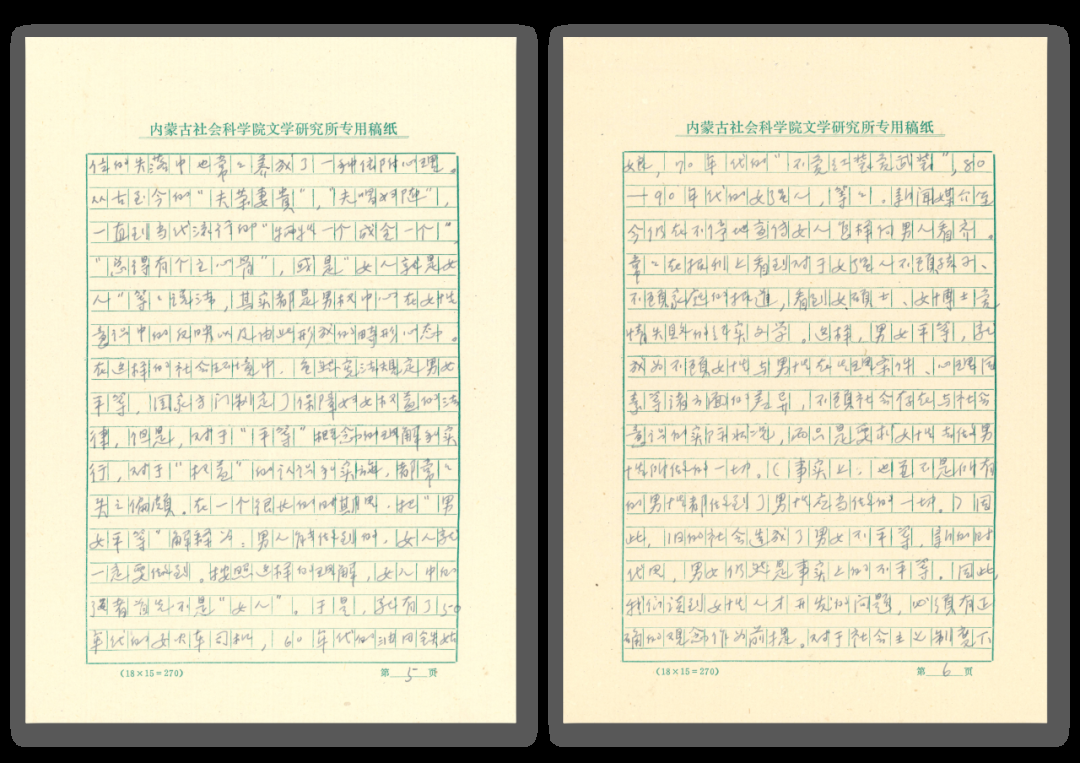 内蒙古社会科学院文学研究所专用稿纸
位的失落中也常〻养成了一种依附心理。
从古至今的“夫荣妻贵”，“夫唱妇随”，
一直到当代流行的“牺牲一个成全一个”。
“总得有个主心骨”，或是“女人就是女
人”等〻说法，其实都是男权中心在女性
意识中的反映以及由此形成的畸形心态。
在这样的社会环境中，包括宪法规定男女
平等，国家专门制定了保障妇女权益的法
律，但是，对于“平等”概念的理解到实
行，对于“权益”的认识到实施，都常〻
失之偏颇。在一个很长的时期里，把“男
女平等”解释为：男人能做到的，女人就
一定要做到。按照这样的理解，女人中的
强者首先不是“女人”。于是，就有了50
年代的女火车司机，60年代的油田铁姑
（18×15＝270）
第 5 页
内蒙古社会科学院文学研究所专用稿纸
娘，70年代的“不爱红装爱武装”，80
—90年代的女强人，等〻。新闻媒介至
今仍在不停地宣传女人怎样向男人看齐。
常〻在报刊上看到对于女强人不顾孩子、
不顾家庭的报道，看到女硕士、女博士竞
情失 的纪实文学。这样，男女平等，就
成为不顾女性与男性在生理条件、心理因
素等诸方面的差异，不顾社会存在与社会
意识的实际状况，而只是要求女性去做男
性所做的一切。（事实上，也并不是所有
的男性都做到了男性应当做的一切。）因
此，旧的社会造成了男女不平等，新的时
代里，男女仍然是事实上的不平等。因此，
我们谈到女性人才开发的问题，必须有正
确的观念作为前提。对于社会主义制度下
（18×15＝270）
第 6 页